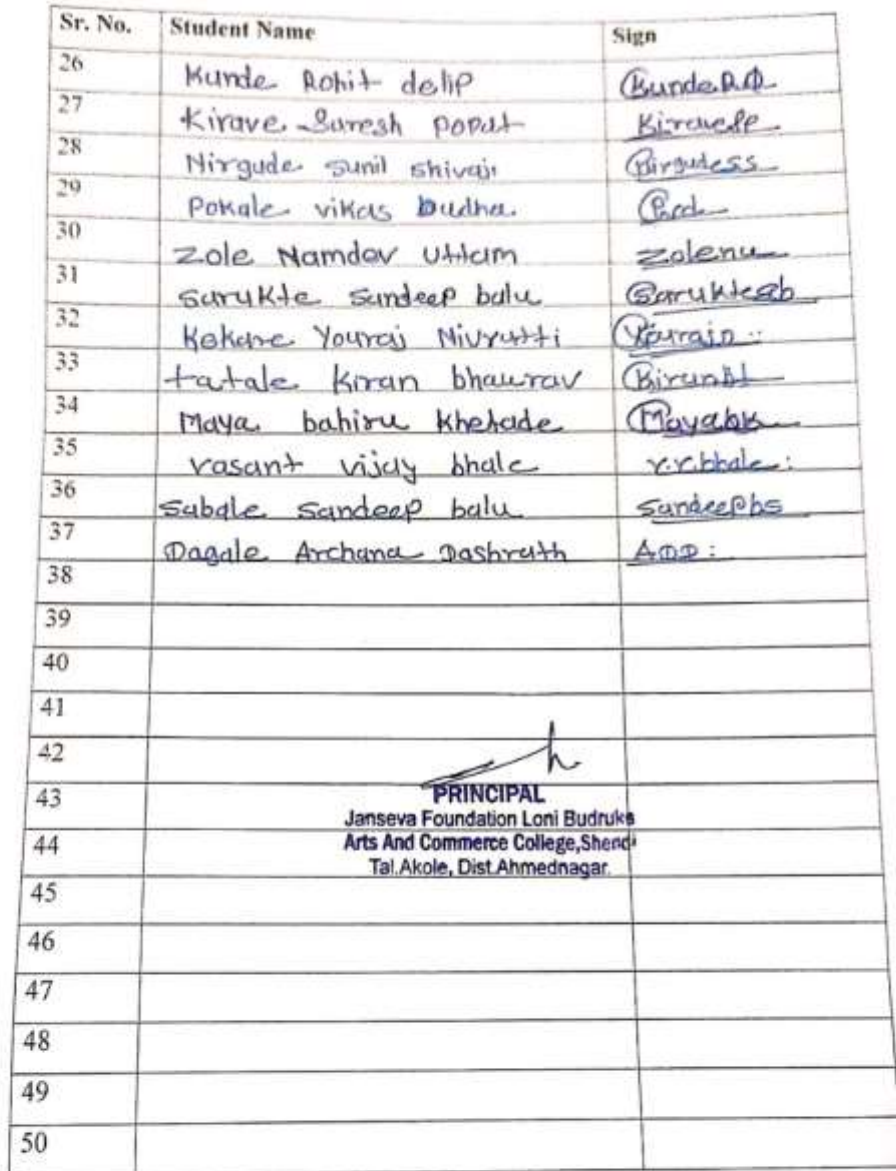 Sr. No. Student Name Sign
26 Kunde Rohit delip KundeR.D.
27 Kirave Suresh Popat KiraveSP
28 Nirgude sunil shivaji Nirgudess
29 Pokale vikas budha
30 Zole Namdev Uttam Zolenu
31 Sarukte Sandeep balu Saruktesb
32 Kekare Youraj Nivrutti
33 tatale Kiran bhaurav
34 Maya bahiru Khetade Mayabk
35 vasant vijay bhale v.v.bhale:
36 Sabale Sandeep balu Sandeepbs
37 Dagale Archana Dashrath ADD:
38
39
40
41
42
43
PRINCIPAL
Janseva Foundation Loni Budruks
44 Arts And Commerce College,Shendi
Tal.Akole, Dist.Ahmednagar.
45
46
47
48
49
50